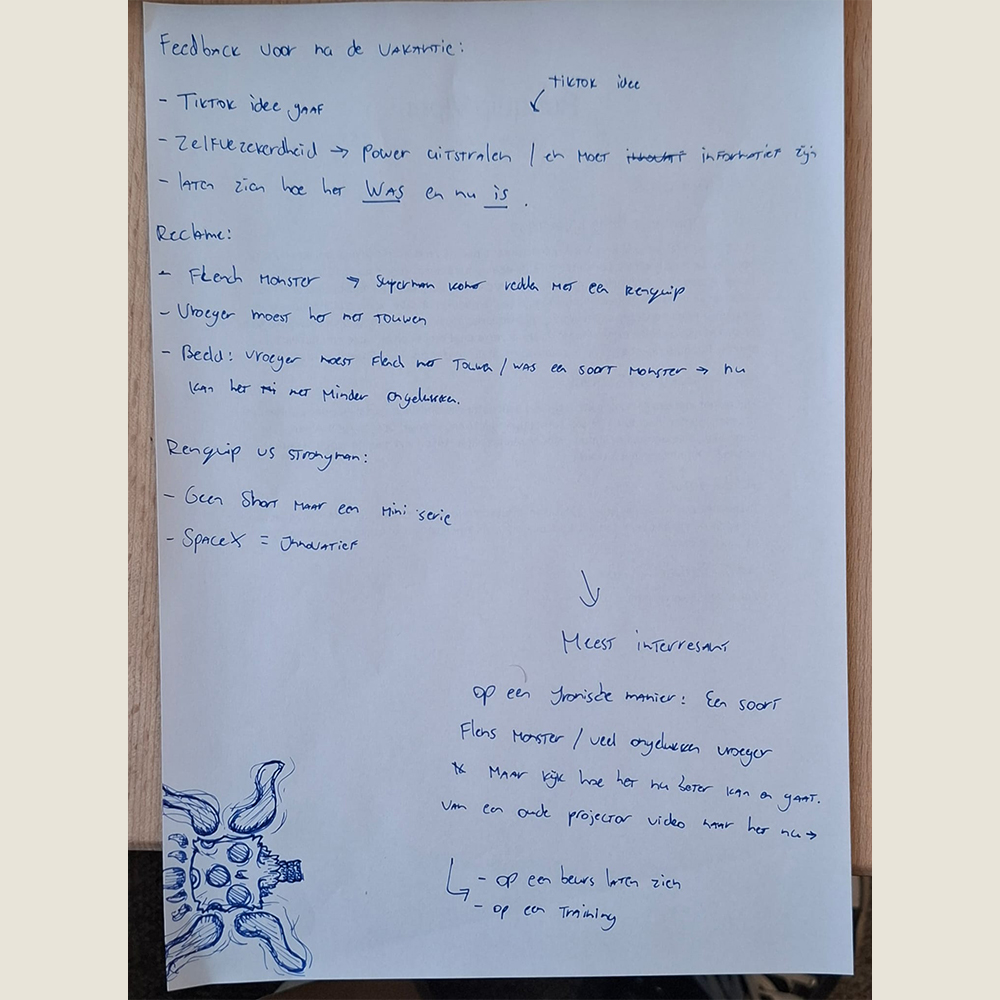 Feedback voor na de vakantie:
Tiktok idee
- Tiktok idee gaaf
- Zelfverzekerdheid → Power uitstralen / en moet informatief zijn
- laten zien hoe het WAS en nu is.
Reclame:
- Flench Monster → Superman komt redden met een Renquip
- Vroeger moest het met touwen
- Beeld: vroeger moest Flench met touwen / was een soort monster → nu
kan het met minder ongelukken.
Renquip vs strongman:
- Geen Short maar een mini serie
- SpaceX = innovatief
Meest interresant
op een ironische manier: Een soort
Flens monster / veel ongelukken vroeger
Maar kijk hoe het nu beter kan en gaat.
Van een oude projector video naar het nu →
- op een beurs laten zien
- op een training